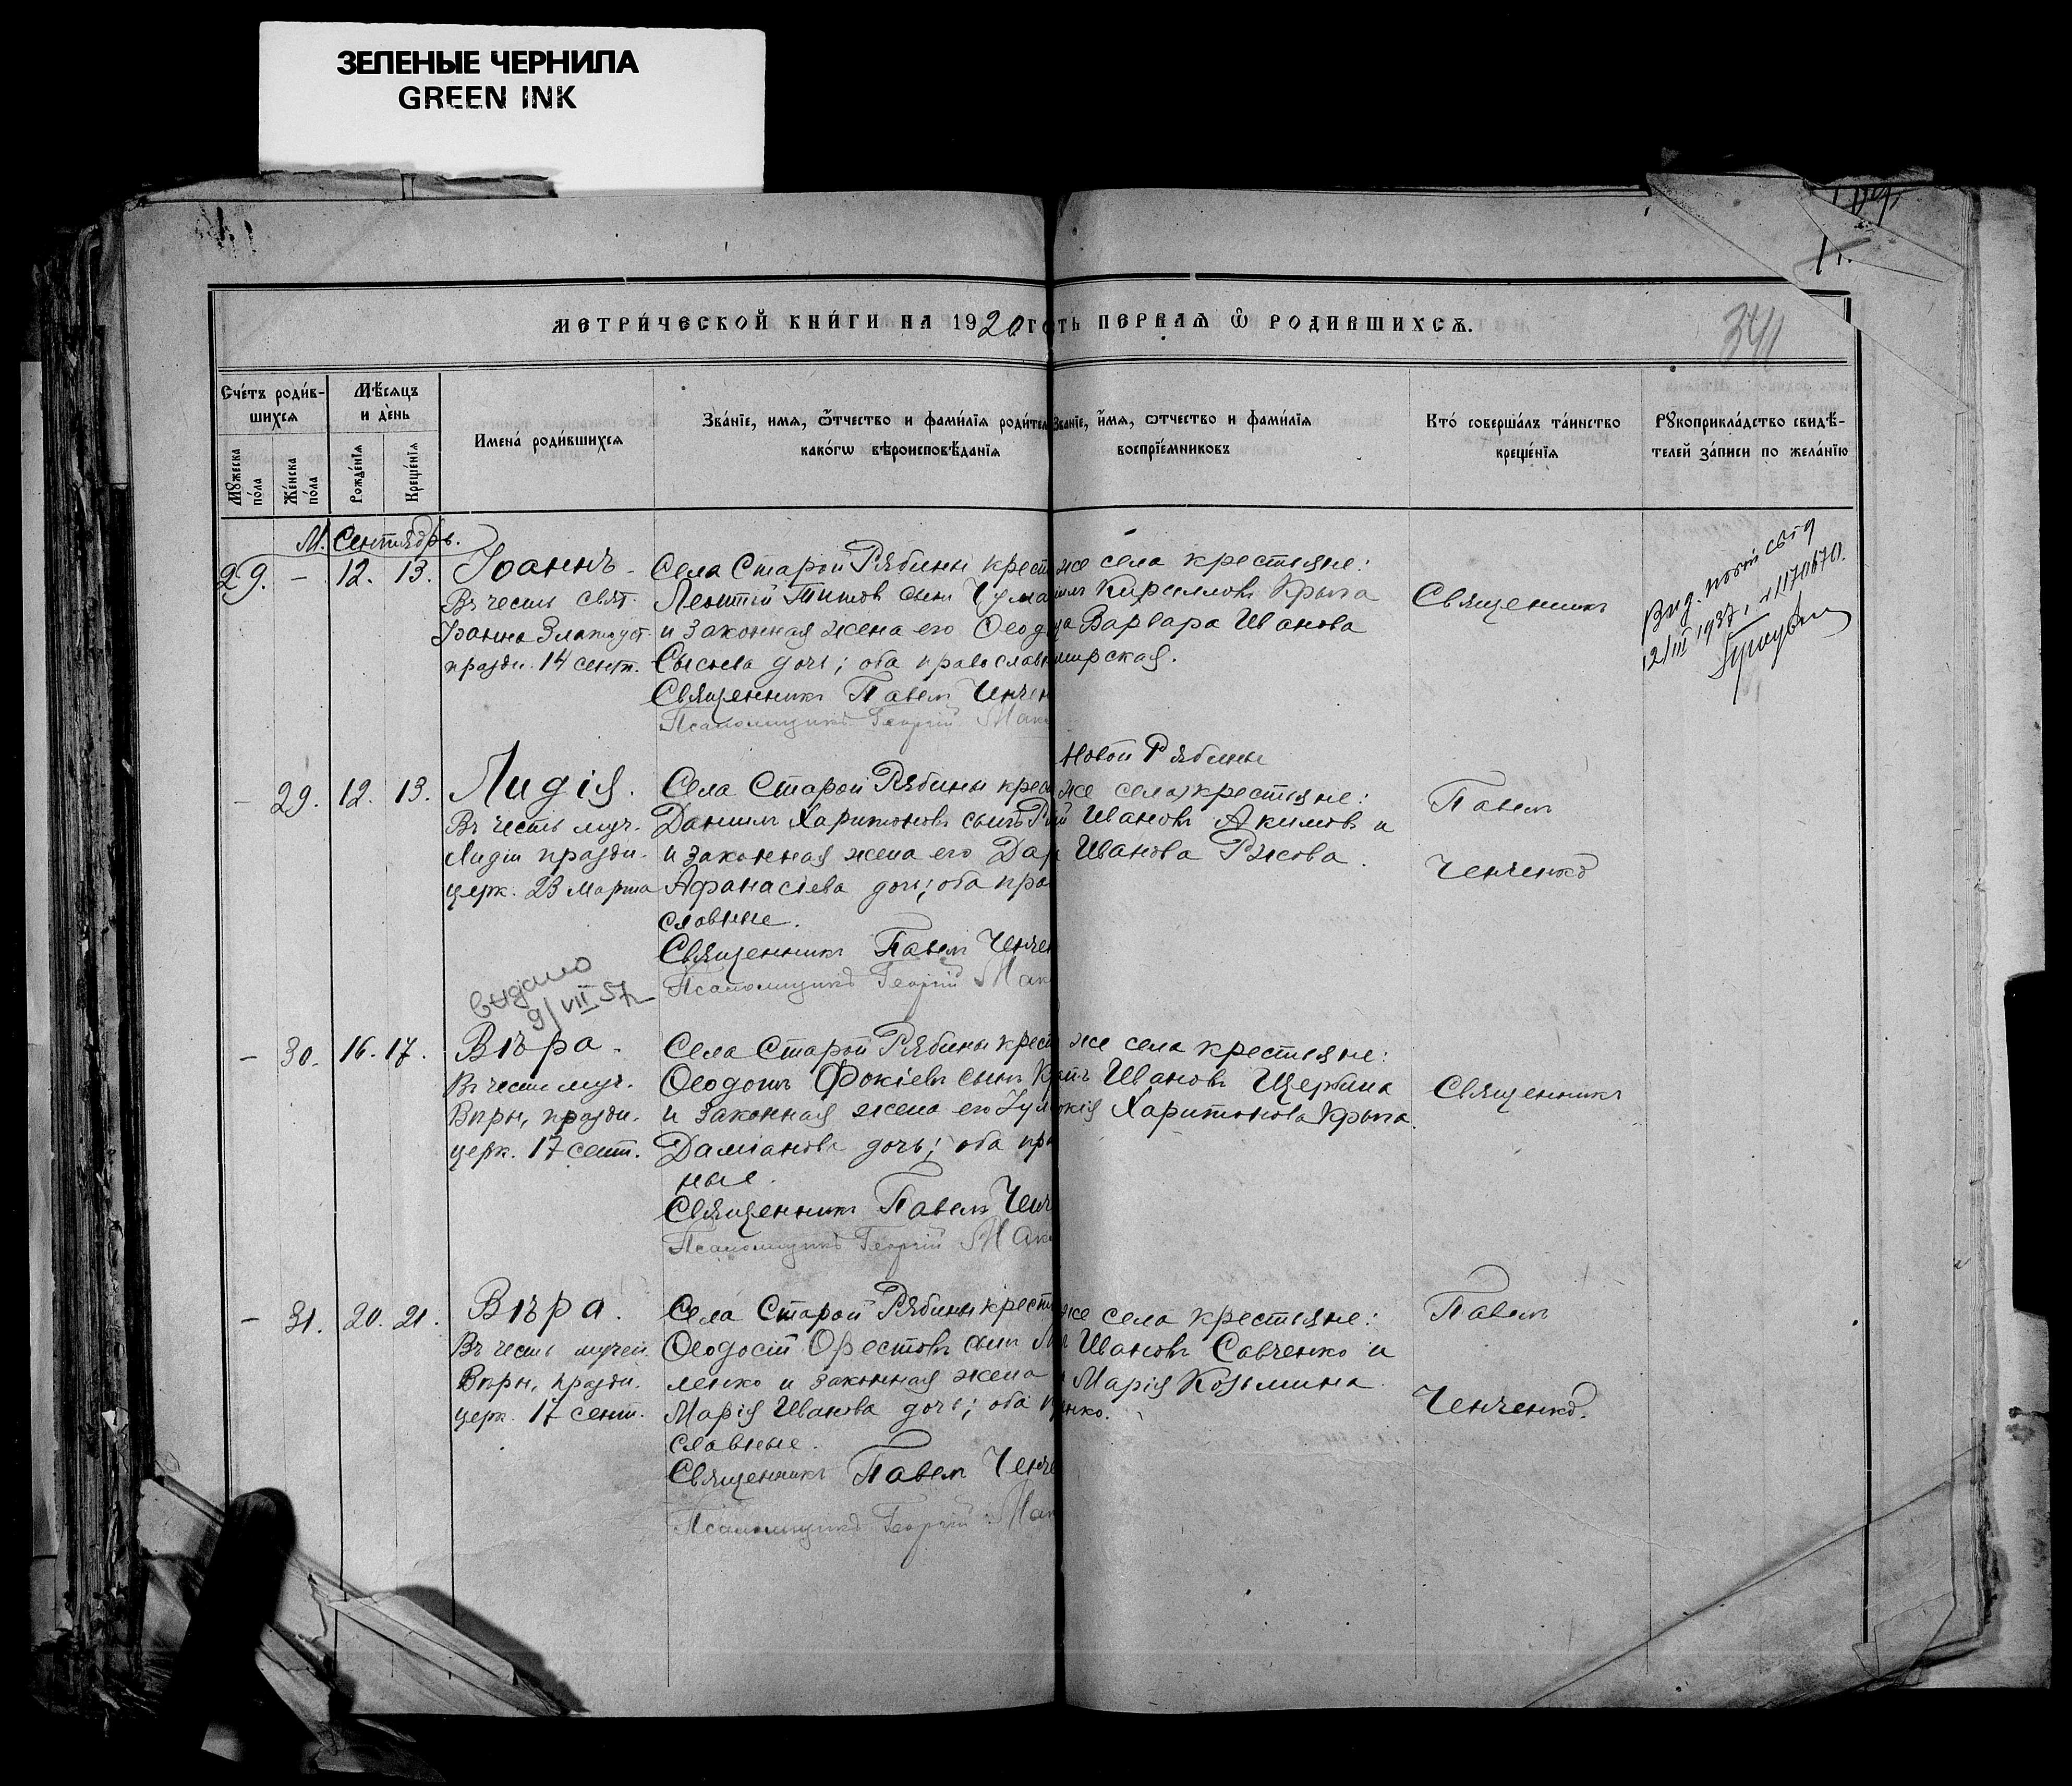 ЗЕЛЕНЫЕ ЧЕРНИЛА
GREEN INK
МЕТРИ́ЧЕСКОЙ КНИ́ГИ НА 1920 ГО
ТЬ ПЕРВАѦ Ѽ РОДИВШИХСѦ.
341
Сче́тъ роди́в-
шихся
Мѣ́сяцъ
и де́нь
Му́жеска по́ла
Же́нска по́ла
Рожде́нія
Креще́нія
Имена́ роди́вшихся
Зва́ніе, имя, ѻ҆́тчество и фами́лія роди́тел
како́гѡ вѣроисповѣ́данія
Зва́ніе, и҆́мя, ѻтчество и фами́лія
воспріе́мниковъ
Кто́ соверша́лъ та́инство
креще́нія
Рꙋкоприкла́дство свидѣ́-
телей за́писи по жела́нію
М. Сентябрь.
29. – 12. 13. Іоаннъ.
Въ честь свят.
Іоанна Златоуст.
праздн. 14 сент.
Села Старой Рябины крест
Леонтій Титовъ сынъ Чума
и законная жена его Ѳеод
Сысоева дочь; оба православн
Священникъ Павелъ Ченчен
Псаломщикъ Георгій Мак
же села крестьяне:
Кирилловъ Крыга
Варвара Иванова
мирская.
Священникъ
Выд.
12/III 1937
– 29. 12. 13. Лидія.
Въ честь муч.
Лидіи праздн.
церк. 23 Марта
Села Старой Рябины крес
Даниилъ Харитоновъ сынъ
и законная жена его Дар
Афанасіева дочь; оба пра
славные.
Священникъ Павелъ Ченчен
Псаломщикъ Георгій Мак
Новой Рябины
же села крестьяне:
й Ивановъ Акимовъ и
Иванова Рысова.
Павелъ
Ченченко
видано
9/VII 57
– 30. 16. 17. Вѣра.
Въ честь муч.
Вѣры, праздн.
церк. 17 сент.
Села Старой Рябины крест
Ѳеодотъ Фокіевъ сынъ
и законная жена его Іул
Даміанова дочь; оба пра
ные.
Священникъ Павелъ Ченч
Псаломщикъ Георгій Мак
же села крестьяне:
Ивановъ Щербина
кія Харитонова Крыга.
Священникъ
– 31. 20. 21. Вѣра.
Въ честь мучен.
Вѣры, праздн.
церк. 17 сент.
Села Старой Рябины крест
Ѳеодосій Орестовъ сынъ
ленко и законная жена
Марія Иванова дочь; оба п
славные.
Священникъ Павелъ Ченче
Псаломщикъ Георгій Мак
же села крестьяне:
Ивановъ Савченко и
Марія Козьмина
енко.
Павелъ
Ченченко.